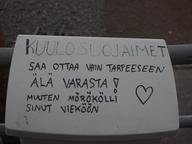 KUULOSUOJAIMET
SAA OTTAA VAIN TARPEESEEN
ÄLÄ VARASTA!
MUUTEN MÖRÖKÖLLI
SINUT VIEKÖÖN